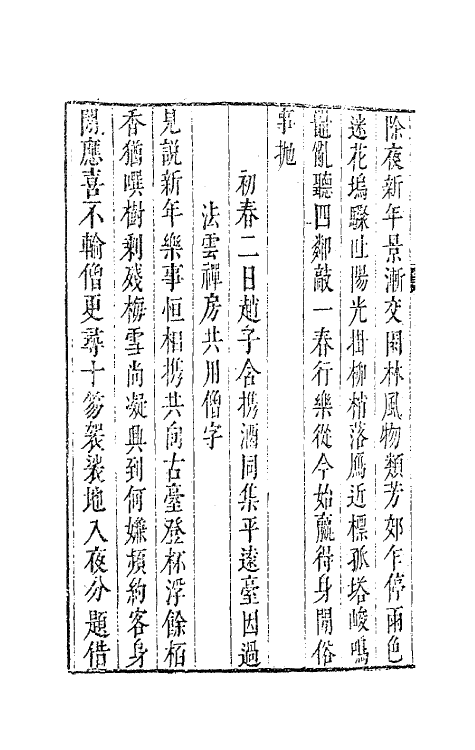 除夜新年景漸交閑林風物類芳郊乍停雨色
迷花塢驟吐陽光掛柳梢落鴈近標孤塔峻鳴
鼉亂聽四鄰敲一春行樂從今始贏得身閒俗
事拋
初春二日趙子含携酒同集平遠臺因過
法雲禪房共用僧字
見說新年樂事恒相携共向古臺登杯浮餘栢
香猶噀樹剩殘梅雪尚凝興到何嫌頻約客身
閒應喜不輸僧更尋十笏袈裟地入夜分題借